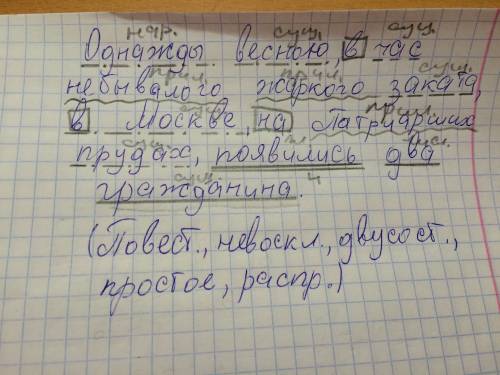 нар. сущ. сущ.
Однажды весною, в час
прил. прил. сущ.
небывалого жаркого заката,
сущ. прил.
в Москве, на Патриарших
сущ. гл. числ.
прудах, появились два
сущ.
гражданина. ч
(Повест., невоскл., двусост.,
простое, распр.)